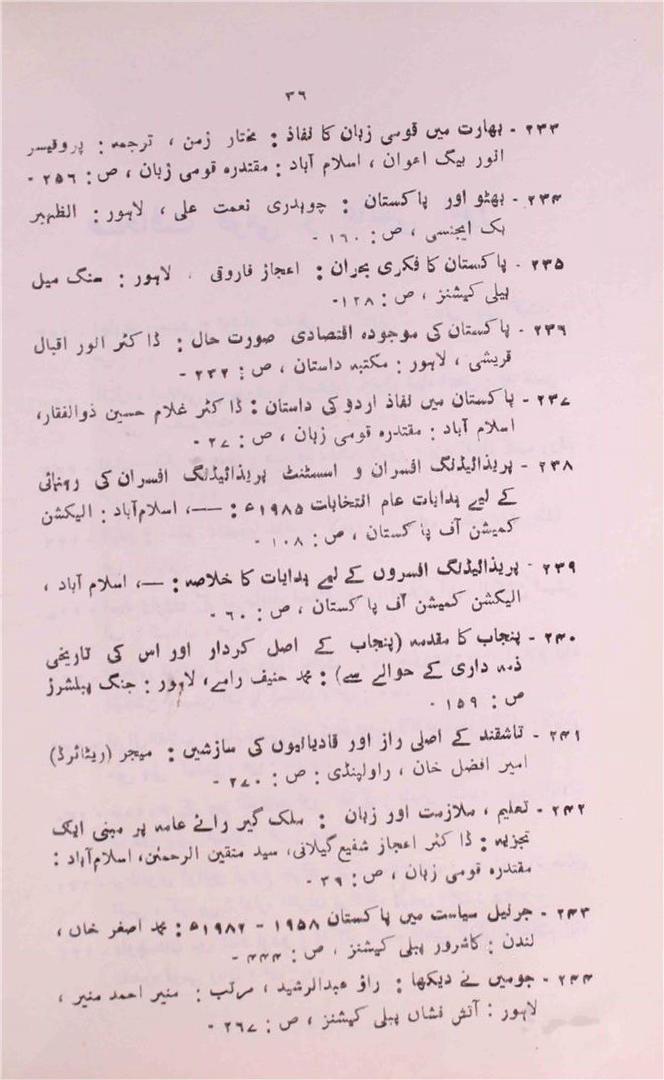 ۳۶
۲۳۳ - بھارت میں قومی زبان کا نفاذ : مختار زمن ، ترجمہ : پروفیسر
انور بیگ اعوان ، اسلام آباد : مقتدرہ قومی زبان ، ص : ۲۵۶ -
۲۳۴ - بھٹو اور پاکستان : چوہدری نعمت علی ، لاہور : الظہیر
بک ایجنسی ، ص : ۱۶۰ -
۲۳۵ - پاکستان کا فکری بحران : اعجاز فاروقی ، لاہور : سنگ میل
پبلی کیشنز ، ص : ۱۲۸ -
۲۳۶ - پاکستان کی موجودہ اقتصادی صورت حال : ڈاکٹر انور اقبال
قریشی ، لاہور : مکتبہ داستان ، ص : ۲۳۲ -
۲۳۷ - پاکستان میں نفاذ اردو کی داستان : ڈاکٹر غلام حسین ذوالفقار ،
اسلام آباد : مقتدرہ قومی زبان ، ص : ۲۷ -
۲۳۸ - پریذائیڈنگ افسران و اسسٹنٹ پریذائیڈنگ افسران کی رہنمائی
کے لیے ہدایات عام انتخابات ۱۹۸۵ء : —— ، اسلام آباد : الیکشن
کمیشن آف پاکستان ، ص : ۱۰۸ -
۲۳۹ - پریذائیڈنگ افسروں کے لیے ہدایات کا خلاصہ : — ، اسلام آباد ،
الیکشن کمیشن آف پاکستان ، ص : ۶۰ -
۲۴۰ - پنجاب کا مقدمہ (پنجاب کے اصل کردار اور اس کی تاریخی
ذمہ داری کے حوالے سے) : محمد حنیف رامے ، لاہور : جنگ پبلشرز
ص : ۱۵۹ -
۲۴۱ - تاشقند کے اصلی راز اور قادیانیوں کی سازشیں : میجر (ریٹائرڈ)
امیر افضل خان ، راولپنڈی : ص : ۲۷۰ -
۲۴۲ - تعلیم ، ملازمت اور زبان : ملک گیر رائے عامہ پر مبنی ایک
تجزیہ : ڈاکٹر اعجاز شفیع گیلانی ، سید متقین الرحمٰن ، اسلام آباد :
مقتدرہ قومی زبان ، ص : ۳۹ -
۲۴۳ - جرنیل سیاست میں پاکستان ۱۹۵۸ - ۱۹۸۲ء : محمد اصغر خاں ،
لندن : کاشرور پبلی کیشنز ، ص : ۴۴۴ -
۲۴۴ - جو میں نے دیکھا : راؤ عبدالرشید ، مرتب : منیر احمد منیر ،
لاہور : آتش فشاں پبلی کیشنز ، ص : ۲۶۷ -